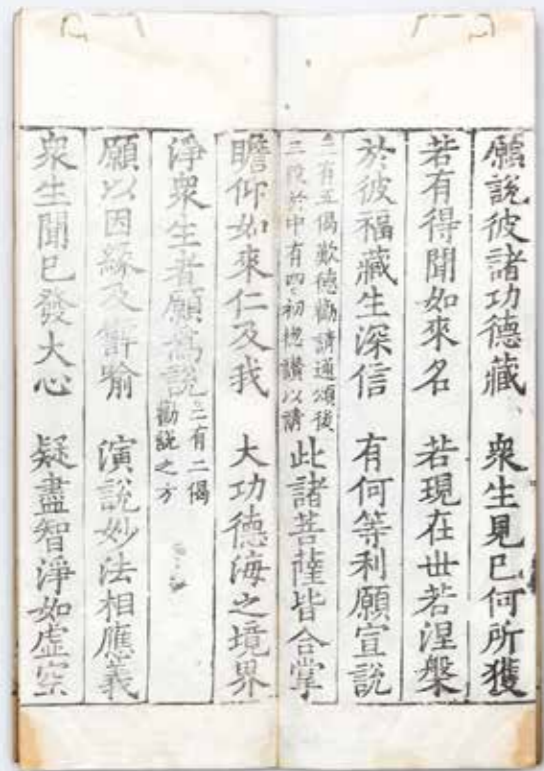 願說彼諸功德藏　衆生見已何所獲
若有得聞如來名　若現在世若涅槃
於彼福藏生深信　有何等利願宣說
三有五偈歎德勸請通頌後
三段於中有四初揔讚以請
此諸菩薩皆合掌
瞻仰如來仁及我　大功德海之境界
淨衆生者願爲說
二有二偈
勸說之方
願以因緣及譬喻　演說妙法相應義
衆生聞已發大心　疑盡智淨如虛空